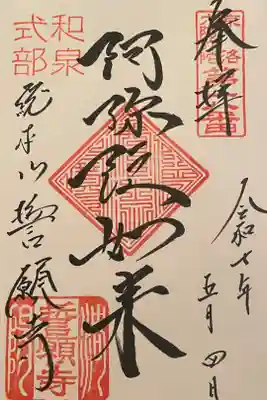 奉拝
令和七年
五月四日
阿弥陀如来
和泉
式部
総本山誓願寺
誓願寺